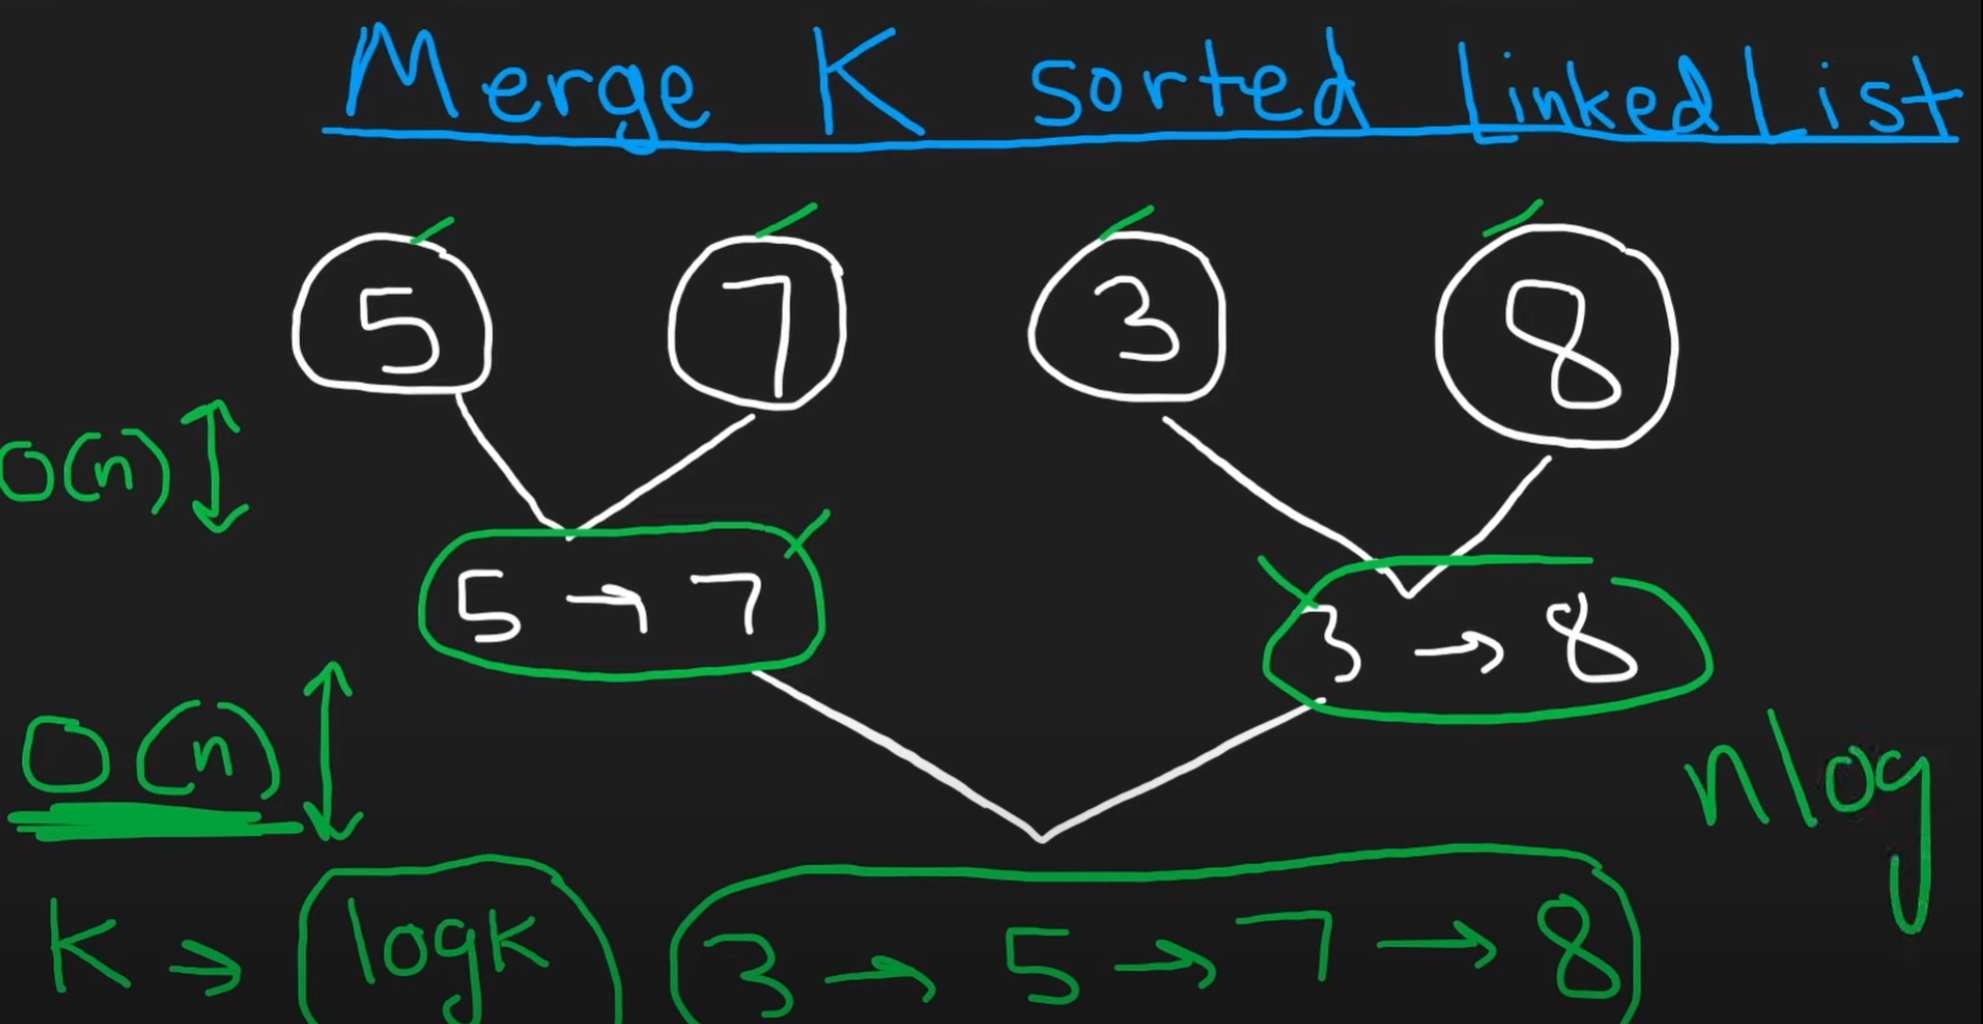 Merge K sorted Linked List
5 7 3 8
O(n)
5 → 7 3 → 8
O(n)
nlog
K → logk
3 → 5 → 7 → 8